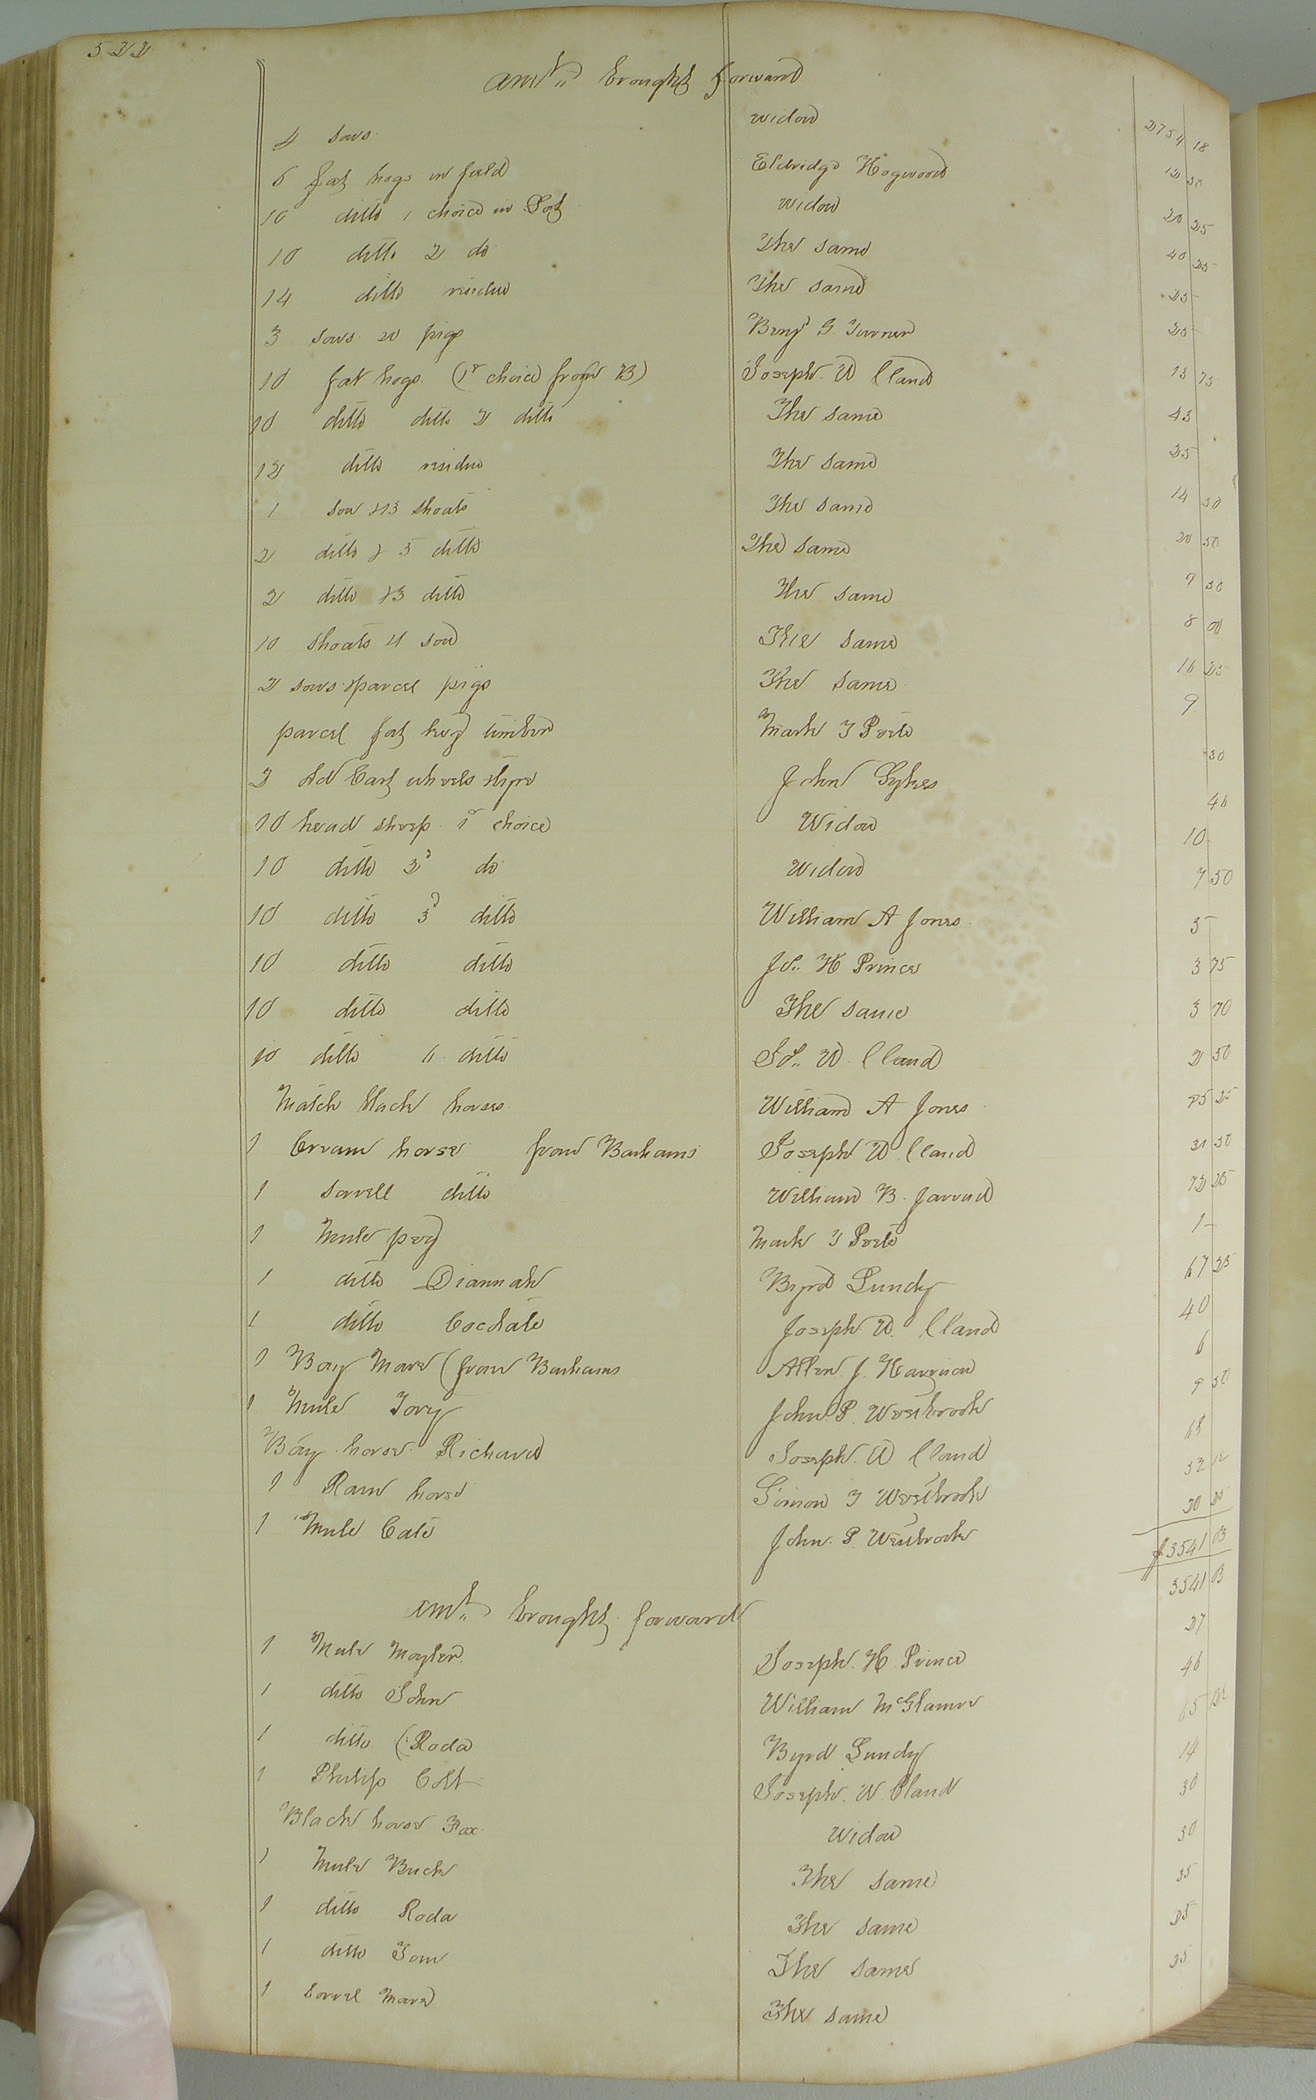 522
amt,, brought forward 2754 18
4 sows widow 12 50
6 fat hogs in field Eldridge Hogwood 20 25
10 ditto 1 choice in Lot widow 40 25
10 ditto 2 do The same 25
14 ditto residue The same 25
3 sows 20 pigs Benj G. Turner 13 75
10 fat hogs (1st choice from B) Joseph W Claud 43
10 ditto ditto 2 ditto The same 25
12 ditto residue The same 14 50
1 sow & 13 shoats The same 20 50
2 ditto & 5 ditto The same 9 50
2 ditto & 3 ditto The same 8 00
10 shoats & 1 sow The same 16 25
2 sows & parcel pigs The same 9
parcel fat hog timber Mark T Porte 30
2 old Cart wheels & tyre John Sykes 46
10 head sheep 1st choice Widow 10
10 ditto 2d do Widow 7 50
10 ditto 3d ditto William A Jones 5
10 ditto ditto Js. H Prince 3 75
10 ditto ditto The same 3 70
10 ditto 6 ditto Js. W. Claud 2 50
Match black horses William A Jones 25
1 Cream horse from Barhams Joseph W Claud 50
1 Sorrell ditto William B. Jarrad 72 25
1 Mule peg Mark T Porte 1
1 ditto Diannah Byrd Lundy 67 25
1 ditto Joseph W. Claud 40
1 Bay Mare (from Barhams Allen J. Harrison 6
1 Mule Tory John P. Westbrook 9 50
Bay horse Richard Joseph W Claud 65
1 Ram horse Simon T Westbrook 52 12
1 Mule Cate John. P. Westbrook 30 25
$3541 03
amt,, brought forward 3541 03
1 Mule Joseph. H Prince 27
1 ditto John William McGlamre 46
1 ditto (Roda Byrd Lundy 65
1 Philip Colt Joseph. W. Claud 14
Black horse Fox Widow 30
1 Mule Buck The same 30
1 ditto Roda The same 35
1 ditto Tom The same 25
1 Sorrel Mare The same 25